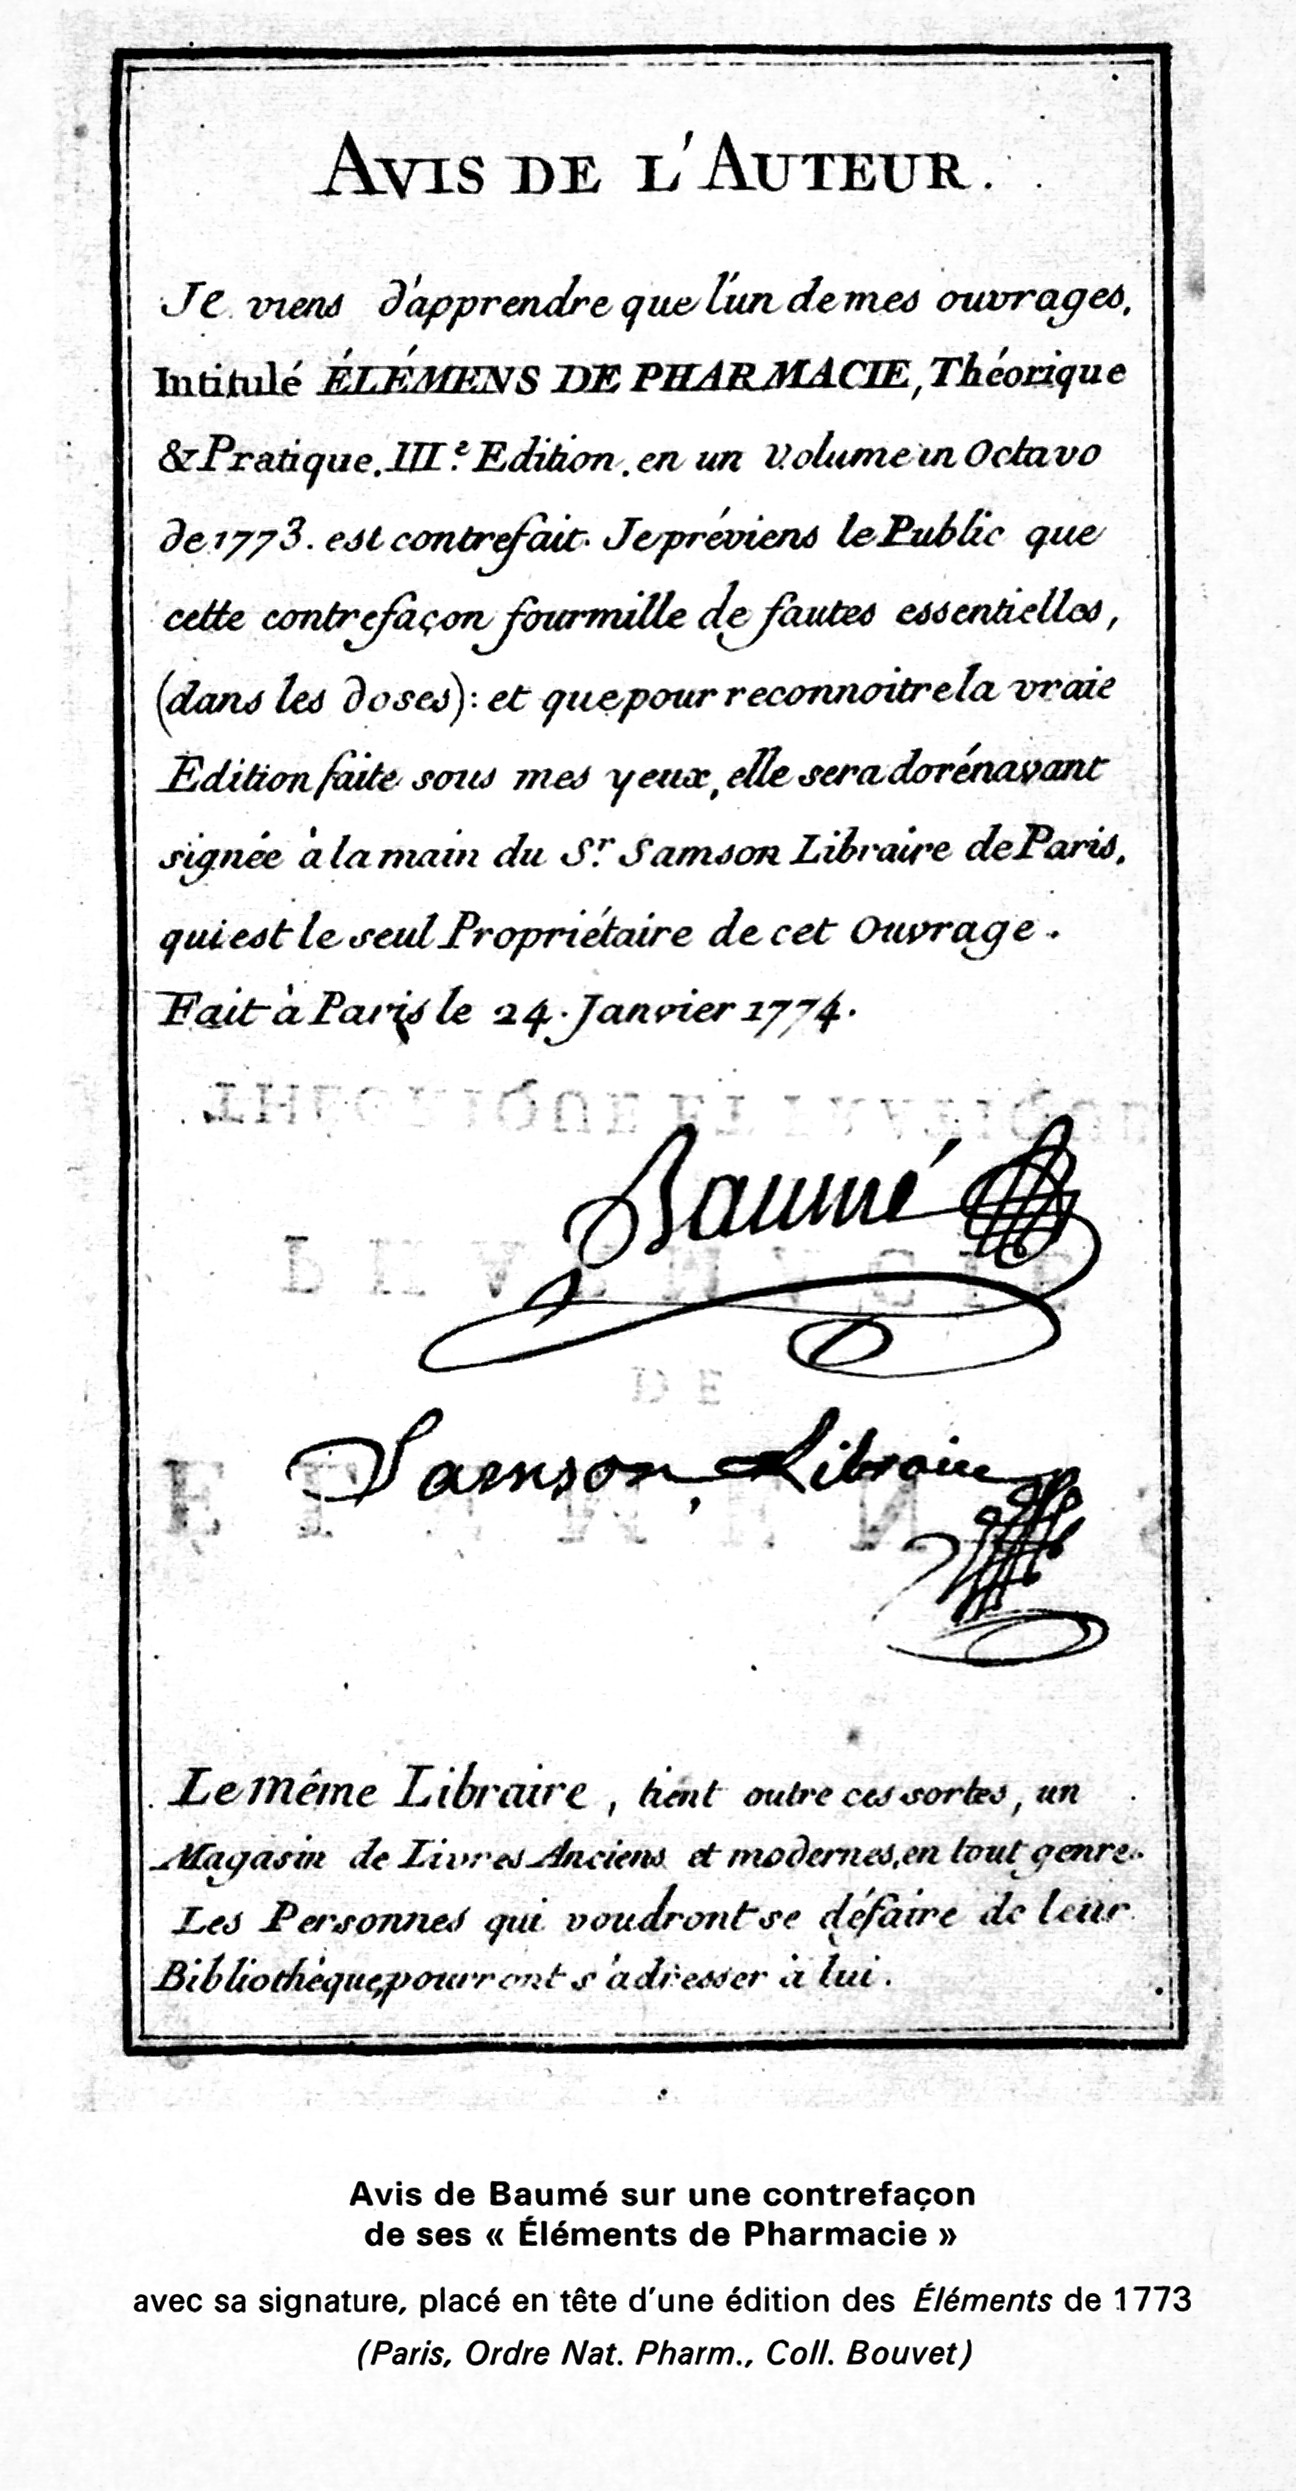 AVIS DE L'AUTEUR.
Je viens d'apprendre que l'un de mes ouvrages,
Intitulé ÉLÉMENS DE PHARMACIE, Théorique
& Pratique. IIIe. Edition. en un volume in Octavo
de 1773. est contrefait. Je préviens le Public que
cette contrefaçon fourmille de fautes essentielles,
(dans les doses): et que pour reconnoitre la vraie
Edition faite sous mes yeux, elle sera dorénavant
signée à la main du Sr. Samson Libraire de Paris,
qui est le seul Propriétaire de cet Ouvrage.
Fait à Paris le 24. Janvier 1774.
Baumé
Samson, Libraire
Le même Libraire, tient outre ces sortes, un
Magasin de Livres Anciens et modernes, en tout genre.
Les Personnes qui voudront se défaire de leur
Bibliothèque, pourront s'adresser à lui.
Avis de Baumé sur une contrefaçon
de ses « Éléments de Pharmacie »
avec sa signature, placé en tête d'une édition des Éléments de 1773
(Paris, Ordre Nat. Pharm., Coll. Bouvet)